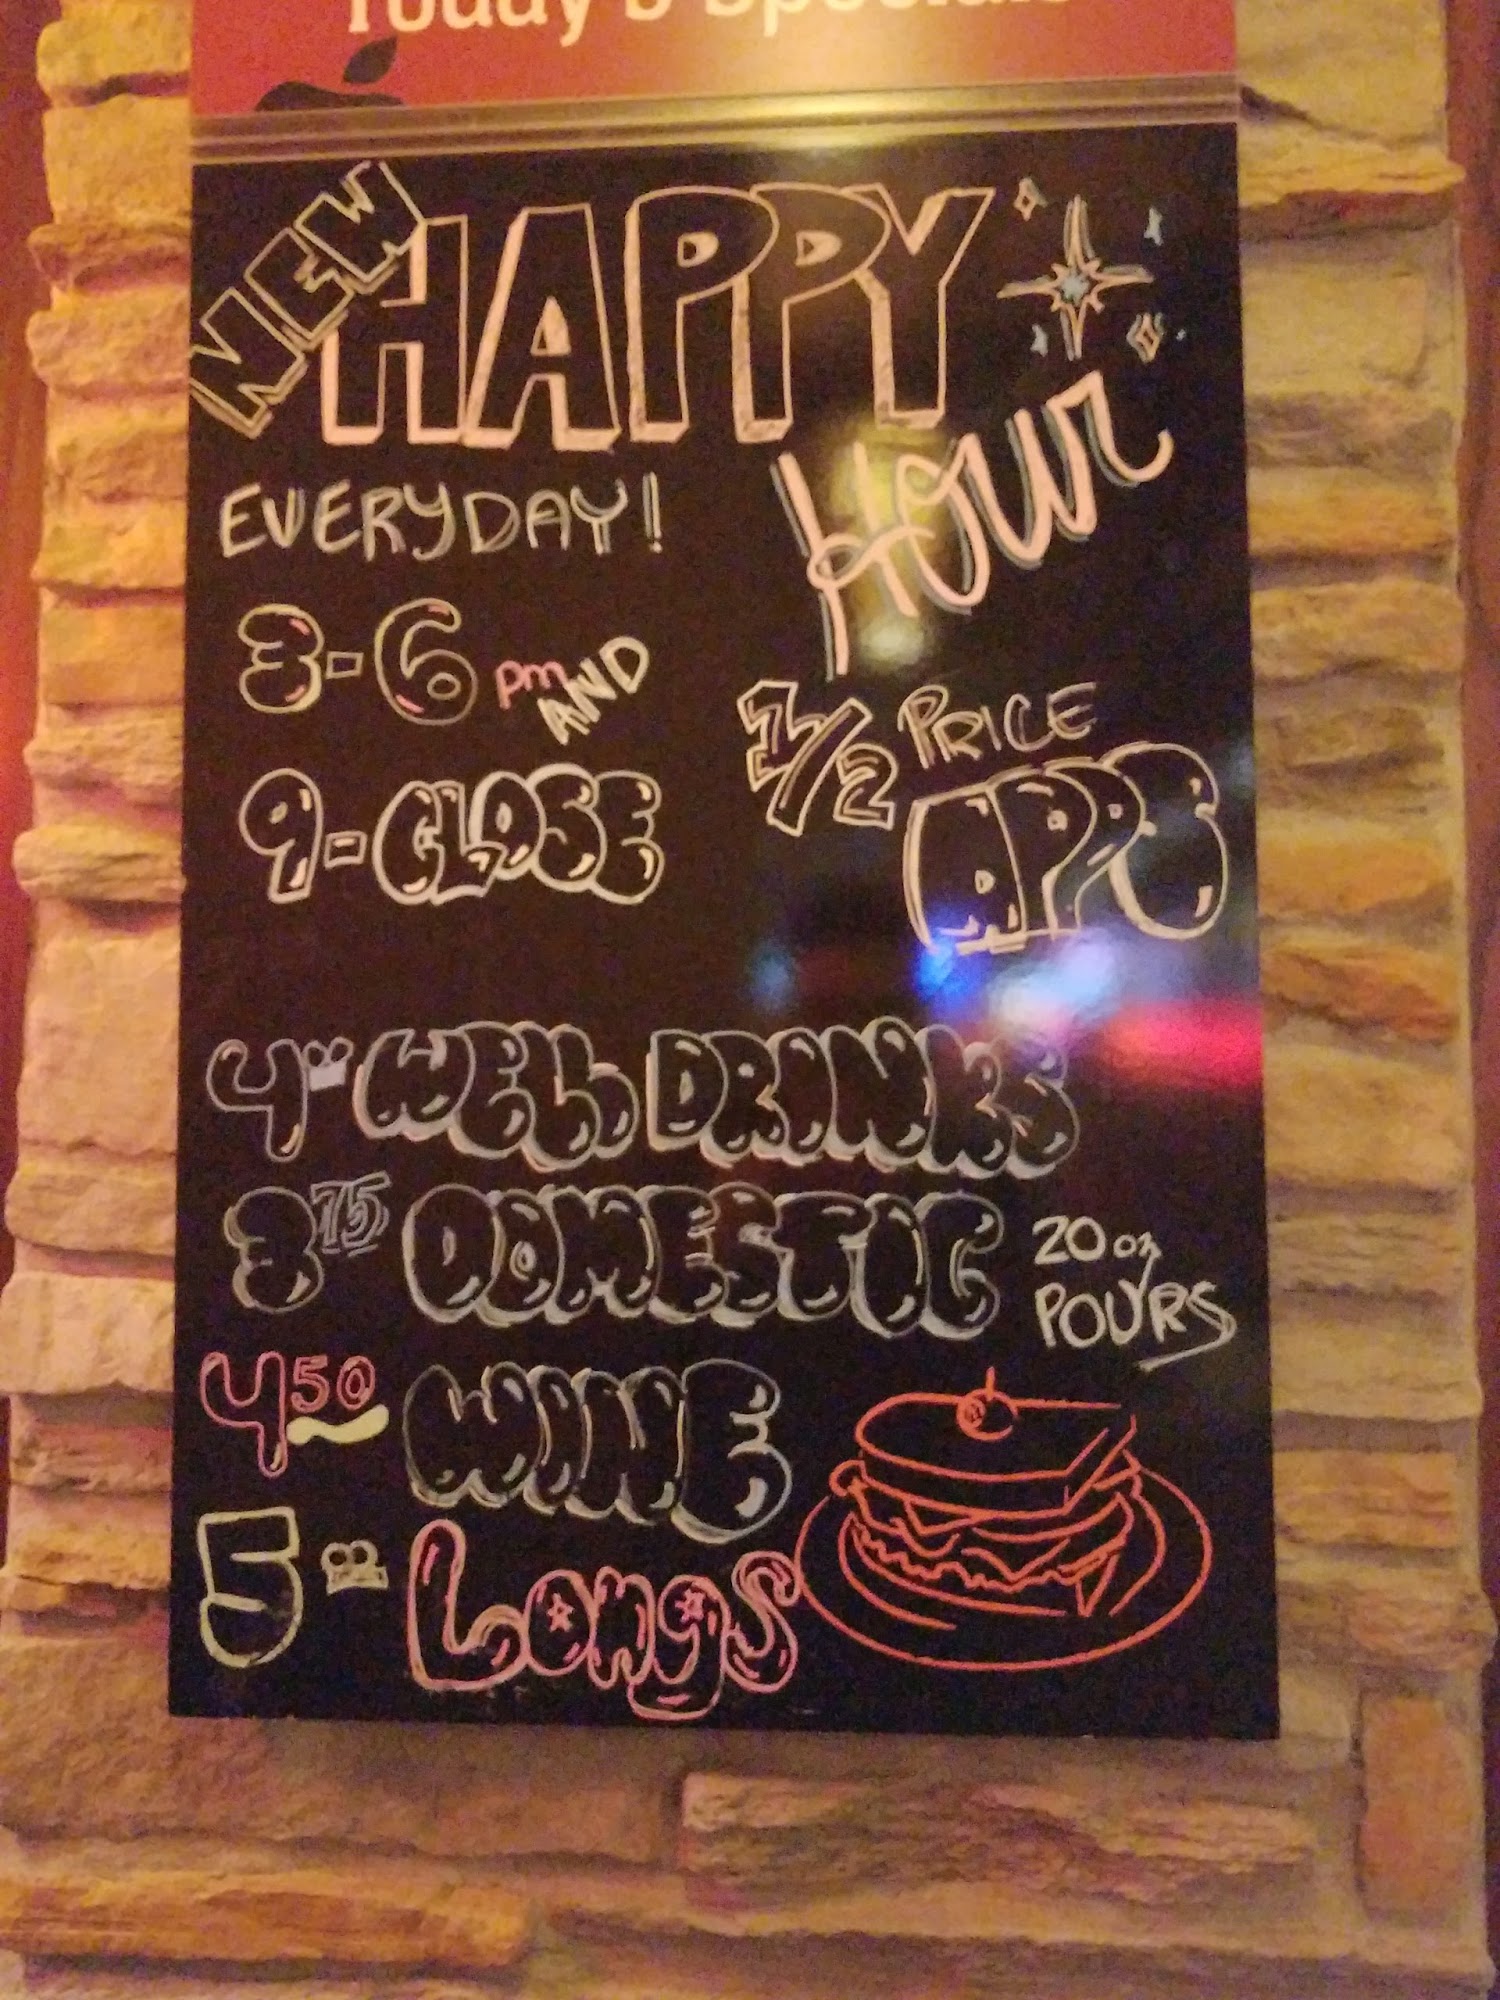 Today's Specials
NEW HAPPY
Hour
EVERYDAY!
3-6 pm AND
9-CLOSE
1/2 PRICE
APPS
4 00 WELL DRINKS
3 75 DOMESTIC 20 oz
POURS
4 50 WINE
5 00 Longs